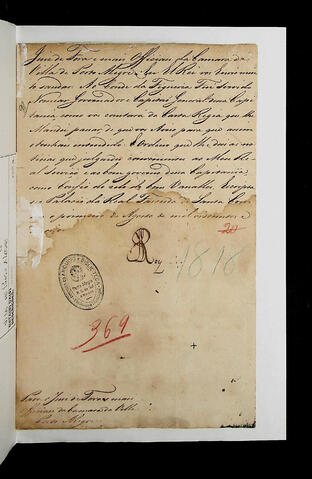 Juis de Fora e mais Officiaes da Camara da
Villa de Porto Alegre. Eu El Rei vos Envio muito
saudar. Ao Conde da Figueira Fui Servido
Nomear Governador e Capitão General dessa Capi
tania como vos constará da Carta Regia que lhe
Mandei passar de que vos Aviso para que assim
o tenhaes entendido e Ordeno que lhe deis as no
ticias que julgardes convenientes ao Meu Real
Serviço e ao bom governo dessa Capitania;
como Confio do zelo de bons Vassallos. Escripta
no Palacio da Real Fazenda de Santa Cruz
o primeiro de Agosto de mil oitocentos e
Rey
20
1818
369
Para o Juis de Fora e mais
Officiaes da Camara da Villa
Porto Alegre